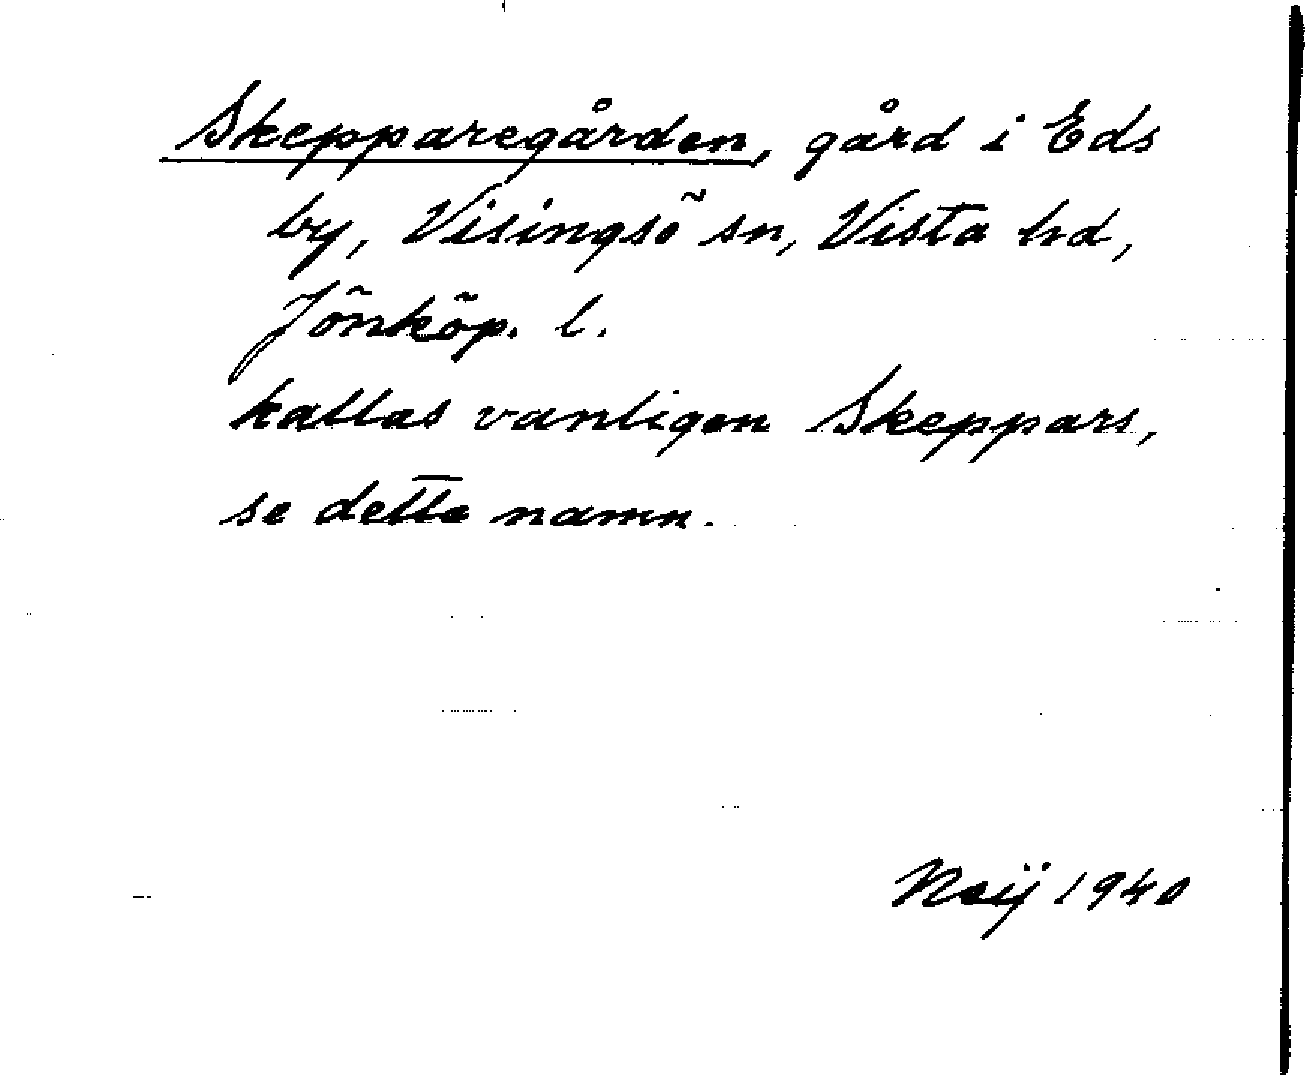 Skepparegården, gård i Eds
by, Visingsö sn, Vista hd,
Jönköp. l.
kallas vanligen Skeppars,
se detta namn.
Neij 1940